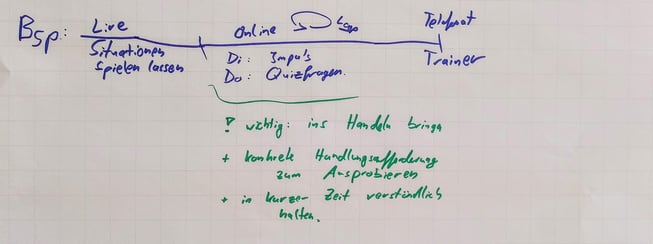 Bsp:
Live
Situationen
spielen lassen
Online
Di: Impu's
Do: Quizfragen.
Telefonat
Trainer
! wichtig: ins Handeln bringen
+ konkrete Handlungsaufforderung
zum Ausprobieren
+ in kurzer Zeit verständlich
halten.